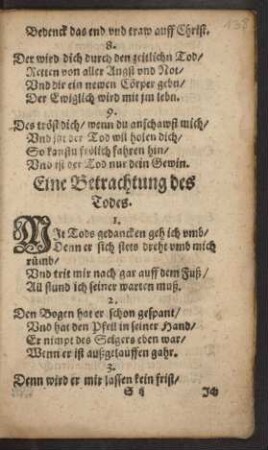 Bedenck das end vnd traw auff Christ.
8.
Der wird dich durch den zeitlichn Tod/
Retten von aller Angst vnd Not/
Vnd dir ein newen Cörper gebn/
Der Ewiglich wird mit jm lebn.
9.
Des tröst dich/ wenn du anschawst mich/
Vnd jtzt der Tod wil holen dich/
So kanstu frölich fahren hin/
Vnd ist der Tod nur dein Gewin.
Eine Betrachtung des
Todes.
1.
MIt Tods gedancken geh ich vmb/
Denn er sich stets dreht vmb mich
rümb/
Vnd trit mir nach gar auff dem Fuß/
All stund ich seiner warten muß.
2.
Den Bogen hat er schon gespant/
Vnd hat den Pfeil in seiner Hand/
Er nimpt des Seigers eben war/
Wenn er ist außgelauffen gahr.
3.
Denn wird er mir lassen kein frist/
S ij Ich